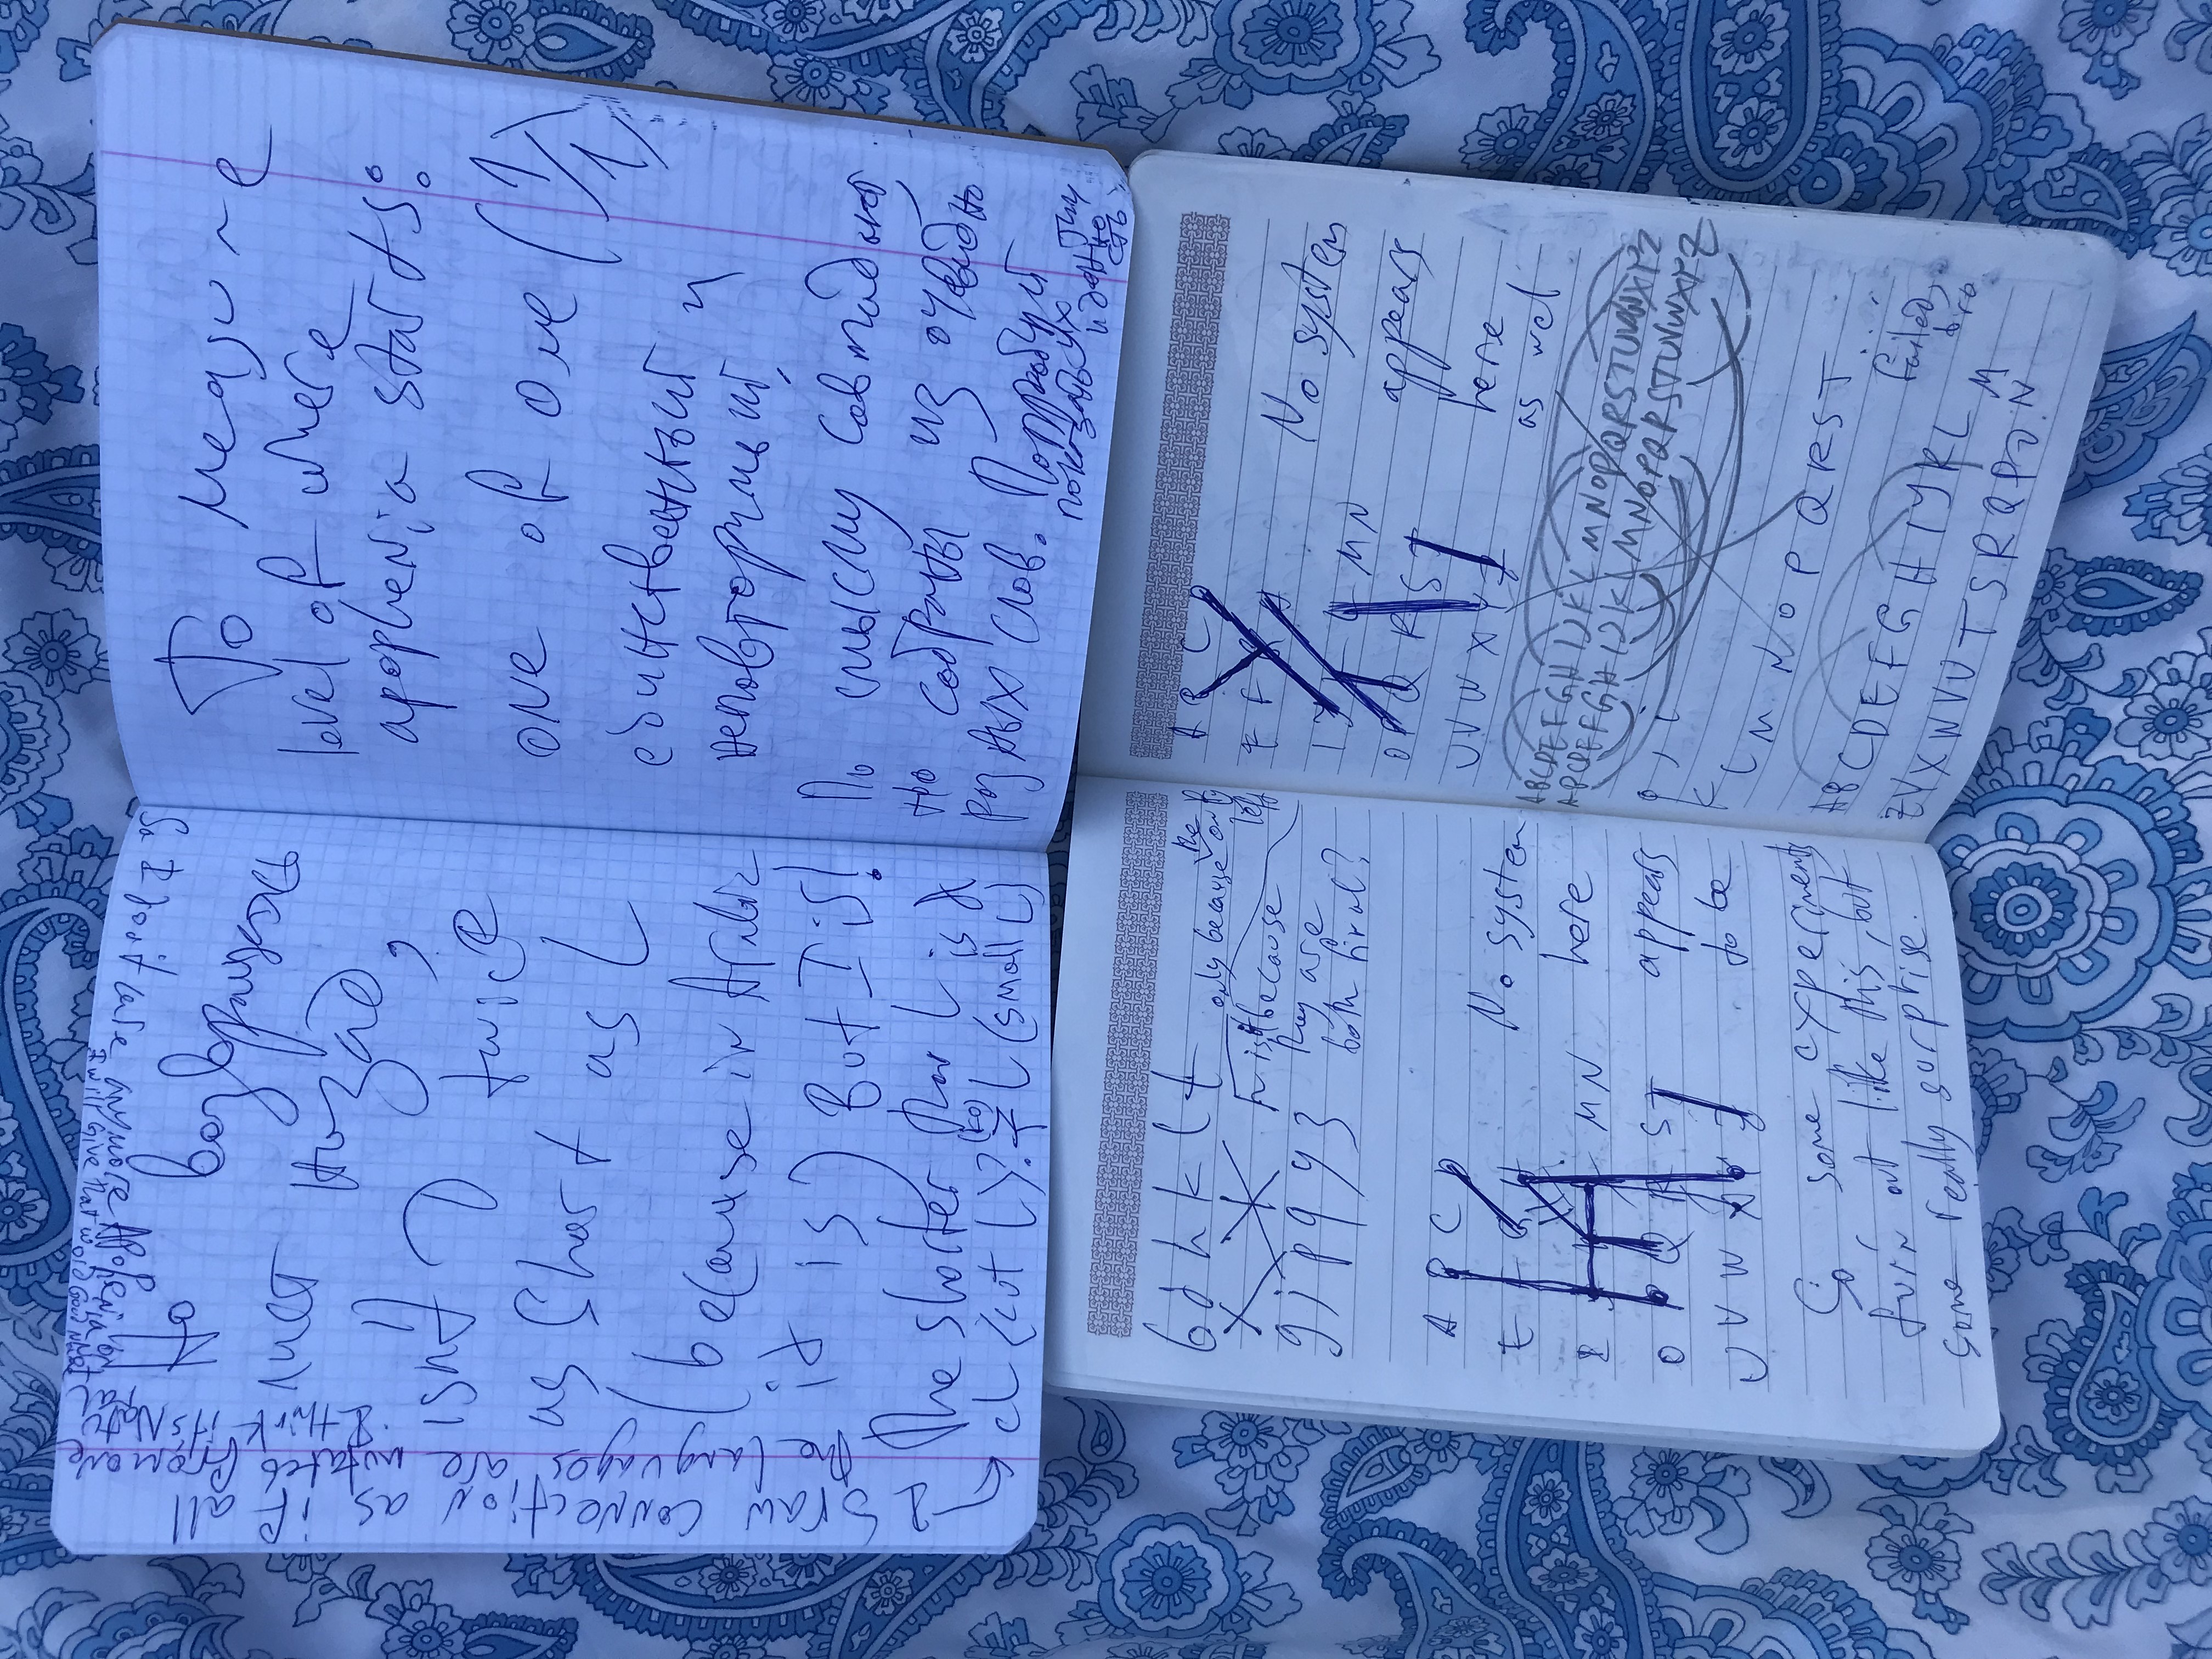 So I don't care anymore Apophenia or
I will give that word good
I draw connection as if all
the languages are mutated from one
I think it's
возвращаясь
лист назад,
isn't
twice
as short as L
(because in Arabic
it is) But I is!
The shorter than L is
cL (cut L)? L (small L)
To measure
level of where
apophenia starts:
one of one (1/1)
единственный и
неповторимый,
По смыслу совпадают,
но собраны из очевидно
разных слов. Попробуй
показать их
идентично
сть
b d h k l t
only because the only
left
isn't because
g j p q y z they are
both final?
A B C D
E F G H No system
I J K L M N here
O P Q R S T appears
U V W X Y Z to be
So, some experiments
turn out like this, but
some really surprise.
A B C D
E F G H No system
I J K L M N appears
O P Q R S T here
U V W X Y Z as wel
ABCDEFGHIJKLMNOPQRSTUVWXYZ
ABCDEFGHIJKLMNOPQRSTUVWXYZ
K L M N O P Q R S T ...
failed,
bro
A B C D E F G H I J K L M
Z Y X W V U T S R Q P O N